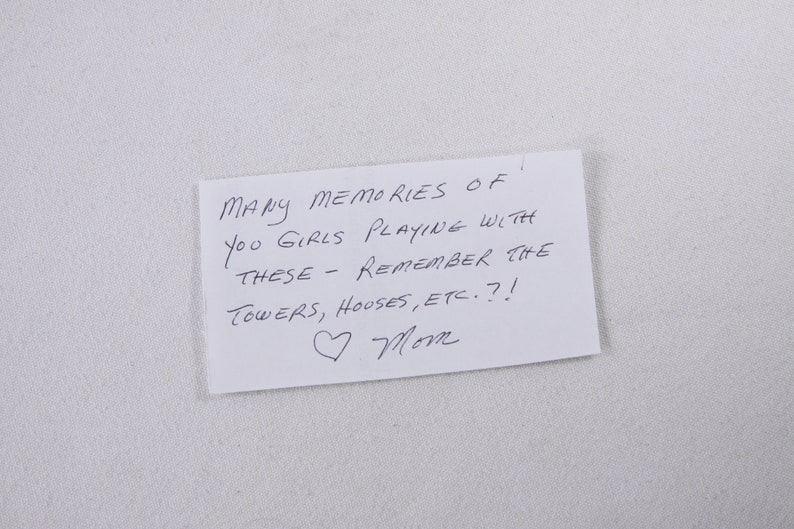 MANY MEMORIES OF
YOU GIRLS PLAYING WITH
THESE – REMEMBER THE
TOWERS, HOUSES, ETC.?!
♡ Mom